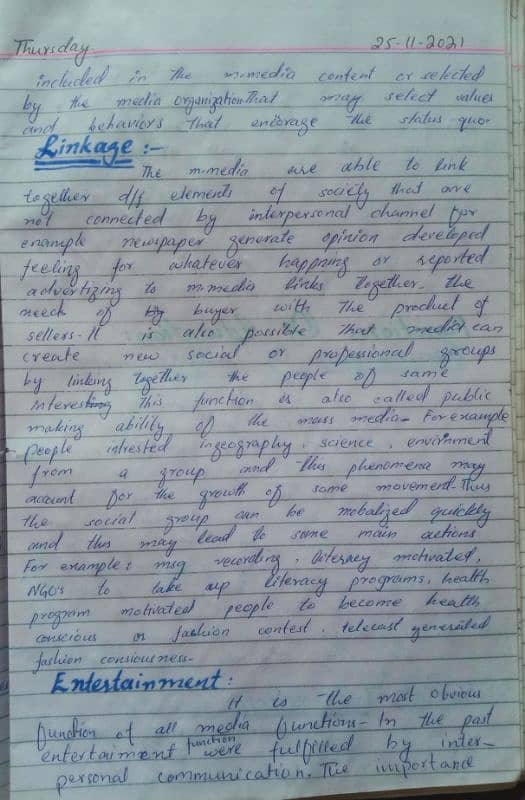 Thursday 25-11-2021
included in the m.media content or selected
by the media organization. That may select values
and behaviors that encorage the status quo.
Linkage :-
The m.media are able to link
together d/f elements of society that are
not connected by interpersonal channel for
example newspaper generate opinion developed
feeling for whatever happning or reported
advertizing to m.media links together. the
need of buyer with the product of
sellers. It is also possible that media can
create new social or professional groups
by linking together the people of same
interest This function is also called public
making ability of the mass media- For example
people intrested ingeography, science, envirnment
from a group and this phenomena may
account for the growth of some movement. Thus
the social group can be mobalized quickly
and this may lead to some main actions
For example: msg recording, literacy motivated,
NGO's to take up literacy programs, health
program motivated people to become health
conscious or fashion contest, telecast generated
fashion consiousness-
Entestainment :
It is the most obvious
function of all media functions- In the past
entertaiment function were fulfilled by inter-
personal communication. The importance